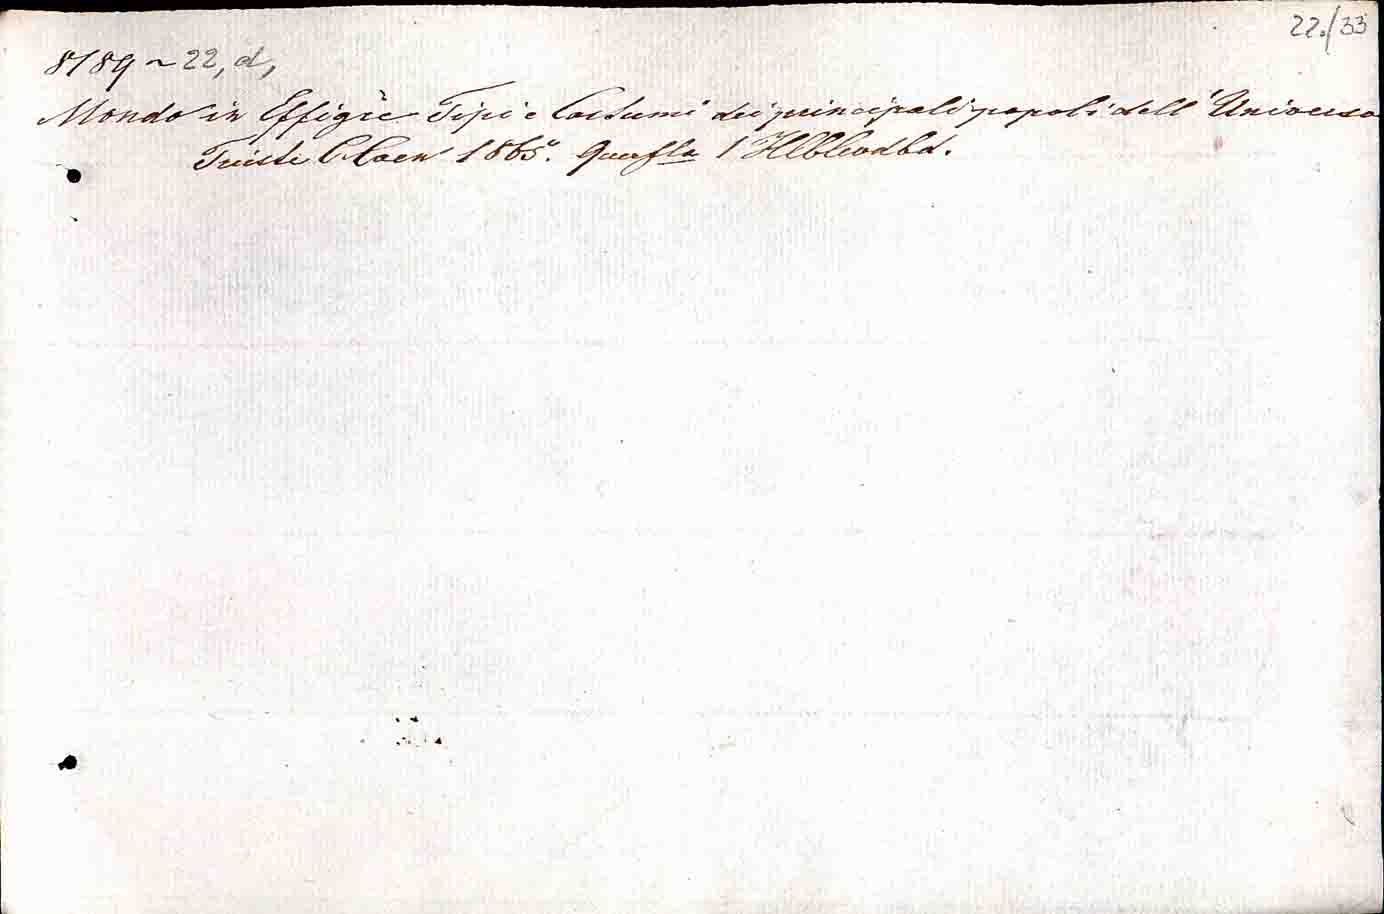 22./33
8189~22,d,
Mondo in Effigie Tipi e Costumi dei principali popoli dell'Universo
Trieste C. Coen 1865. Querfla 1 Hlblwdbd.